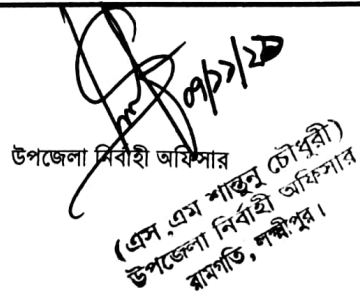 উপজেলা নির্বাহী অফিসার
(এস.এম শান্তুনু চৌধুরী)
উপজেলা নির্বাহী অফিসার
রামগতি, লক্ষ্মীপুর।